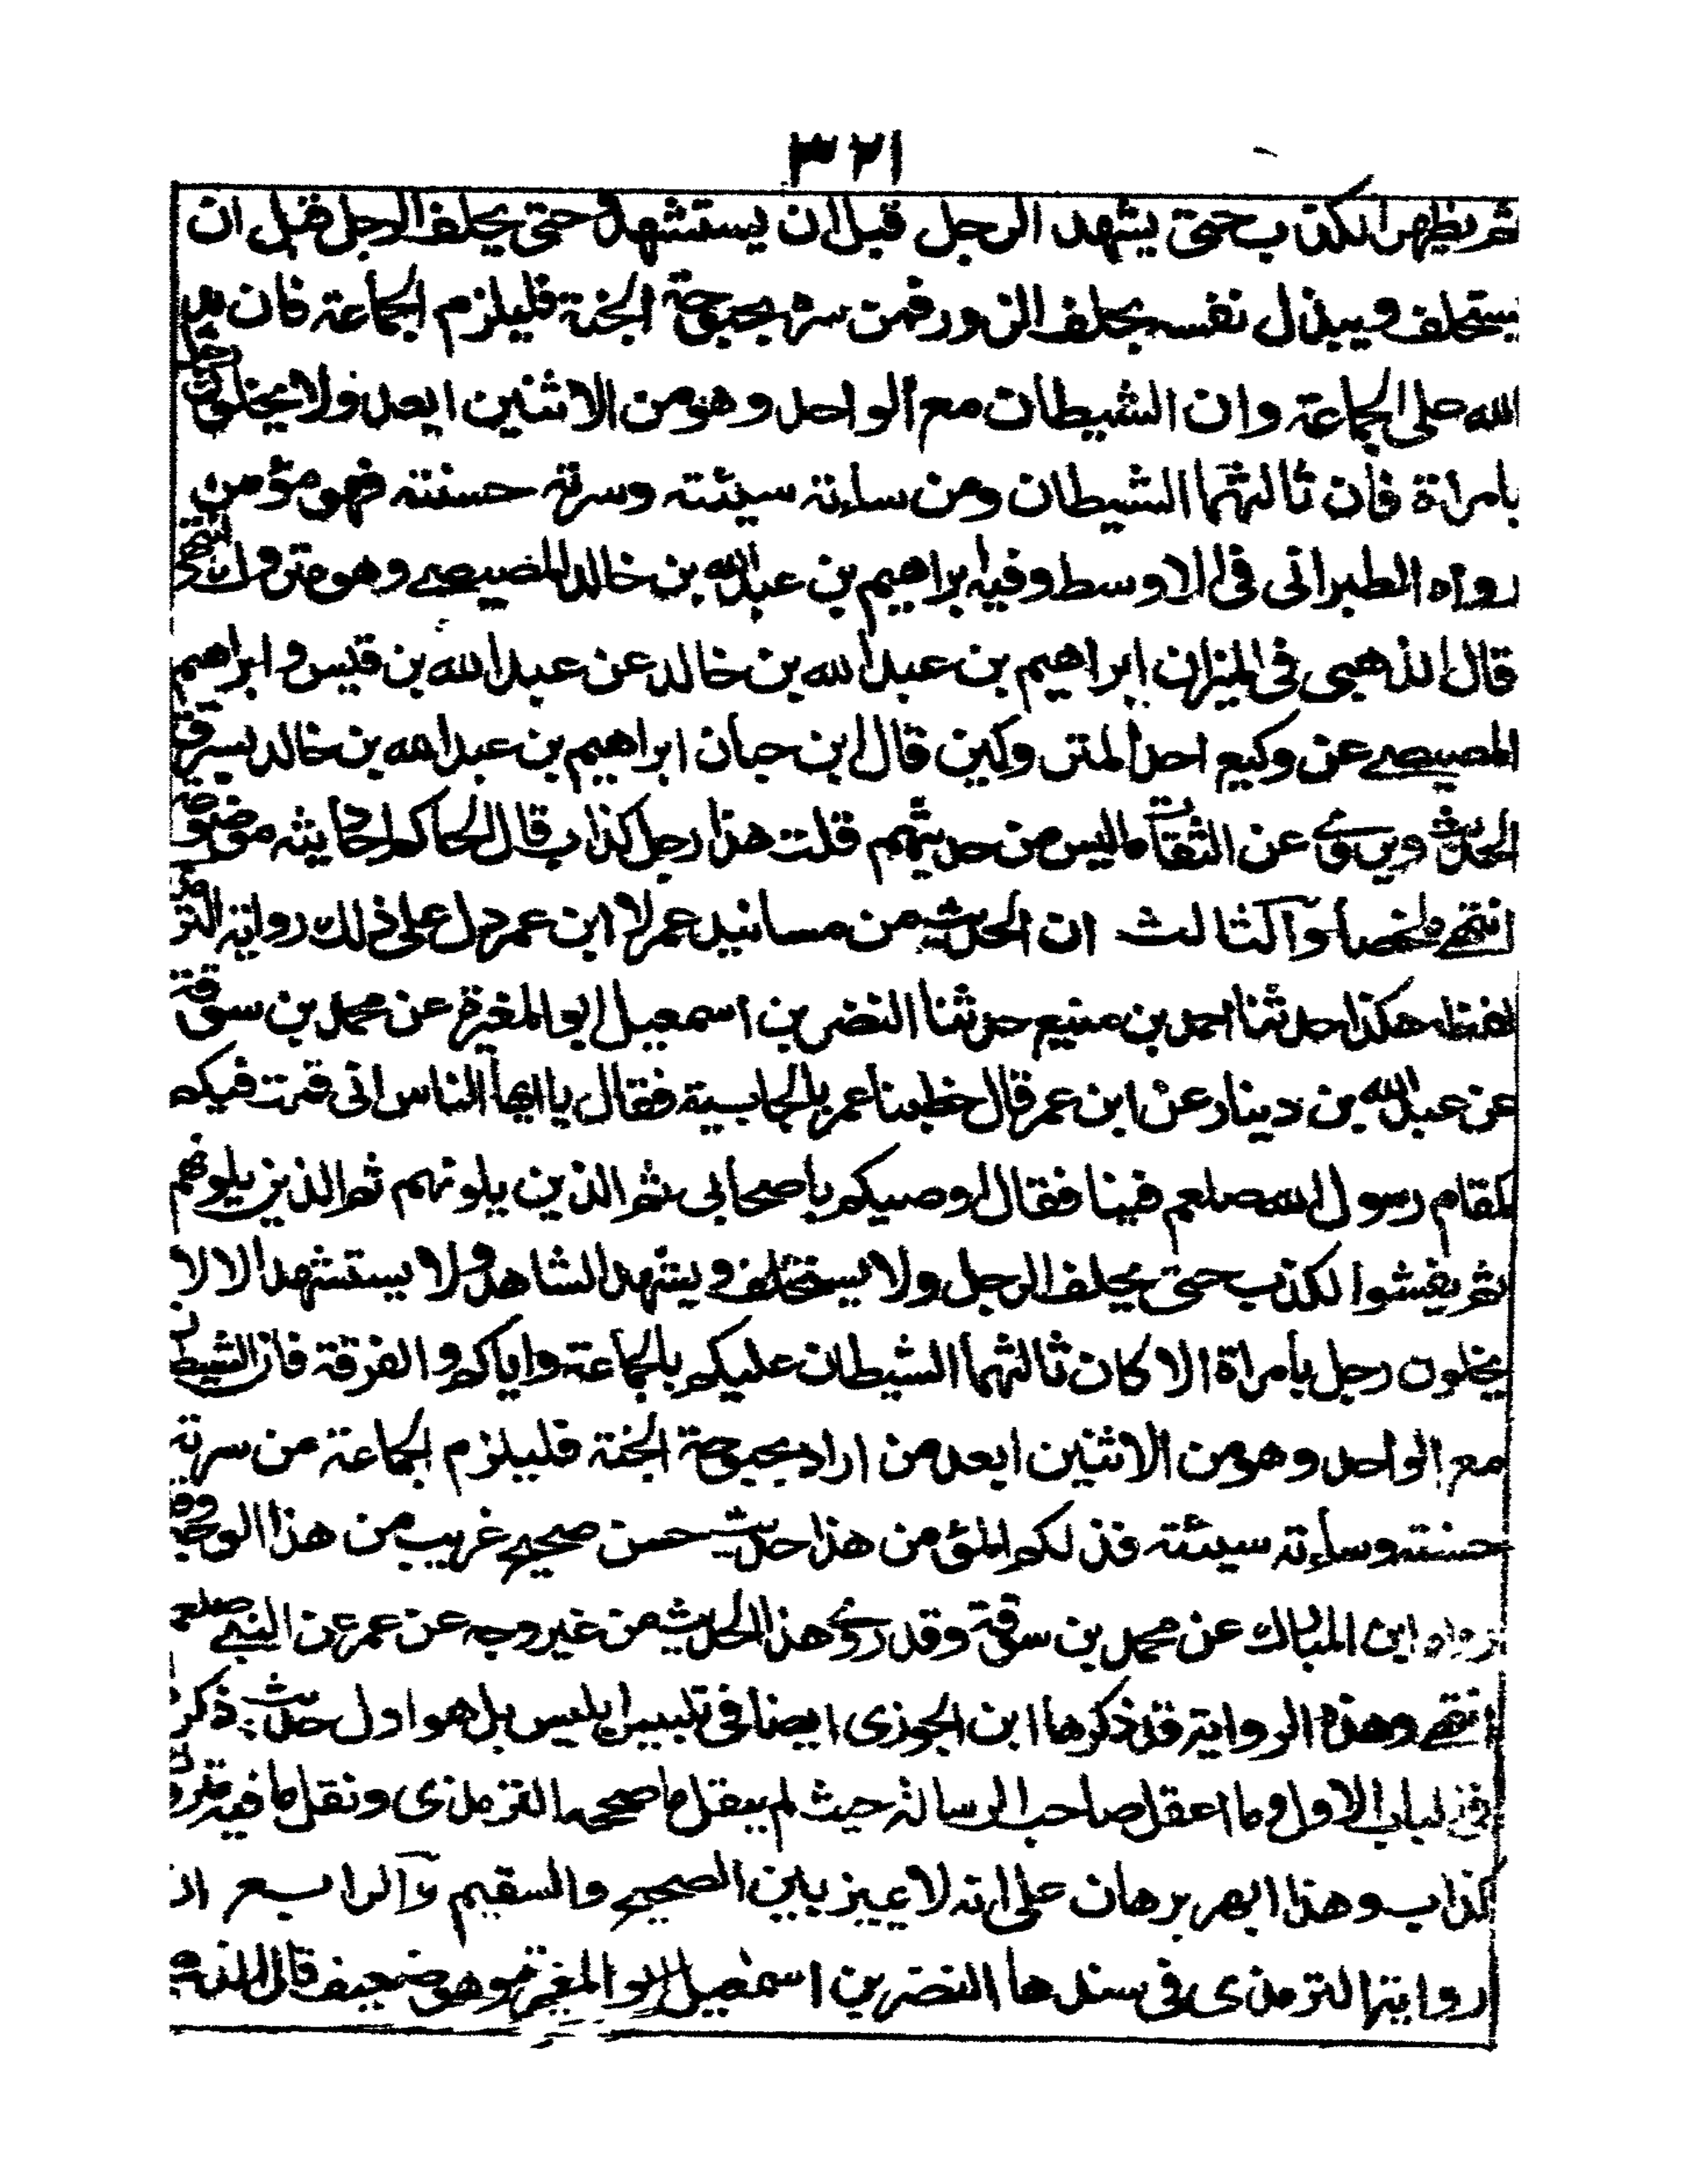 ٣٢١
ثم يظهر الكذب حتى يشهد الرجل قبل ان يستشهد وحتى يحلف الرجل قبل ان
يستحلف ويبذل نفسه بحلف الزور فمن سره بحبوحة الجنة فليلزم الجماعة فان يد
الله على الجماعة وان الشيطان مع الواحد وهو من الاثنين ابعد ولا يخلون رجل
بامراة فان ثالثهما الشيطان ومن ساءته سيئته وسرته حسنته فهو مؤمن
رواه الطبرانى فى الاوسط وفيه ابراهيم بن عبد الله بن خالد المصيصے وهو متروك انتهى
قال الذهبى فى الميزان ابراهيم بن عبد الله بن خالد عن عبد الله بن قيس و ابراهيم
المصيصے عن وكيع احد المتروكين قال ابن حبان ابراهيم بن عبد الله بن خالد يسرق
الحديث ويروى عن الثقات ماليس من حديثهم قلت هذا رجل كذاب قال الحاكم احاديثه موضوعة
انتهے ملخصا وآلثالث ان الحديث من مسانيد عمر لا ابن عمر دل على ذلك رواية الترمذى
لفظه هكذا حدثنا احمد بن منيع حدثنا النضر بن اسمعيل ابو المغيرة عن محمد بن سوقة
عن عبد الله بن دينار عن ابن عمر قال خطبنا عمر بالجابية فقال يا ايها الناس انى قمت فيكم
كمقام رسول الله صلعم فينا فقال اوصيكم باصحابى ثم الذين يلونهم ثم الذين يلونهم
ثم يفشوا لكذب حتى يحلف الرجل ولا يستحلف و يشهد الشاهد ولا يستشهد الا لا
يخلون رجل بامراة الا كان ثالثهما الشيطان عليكم بالجماعة واياكم و الفرقة فان الشيطان
مع الواحد وهو من الاثنين ابعد من اراد بحبوحة الجنة فليلزم الجماعة من سرته
حسنته وساءته سيئته فذلكم المؤمن هذا حديث حسن صحيح غريب من هذا الوجه وقد
رواه ابن المبارك عن محمد بن سوقة وقد روى هذا الحديث من غير وجه عن عمر عن النبے صلعم
انتهے وهذه الرواية قد ذكرها ابن الجوزى ايضا فى تلبيس ابليس بل هو اول حديث ذكر
فى لباب الاول وما اعقل صاحب الرسالة حيث لم ينقل ما صححه الترمذى ونقل ما فيه متروك
كذاب وهذا ابهر برهان على انه لا يميز بين الصحيح والسقيم وآلرابع ان
رواية الترمذى فى سندها النضر بن اسمعيل ابو المغيرة وهو ضعيف قال